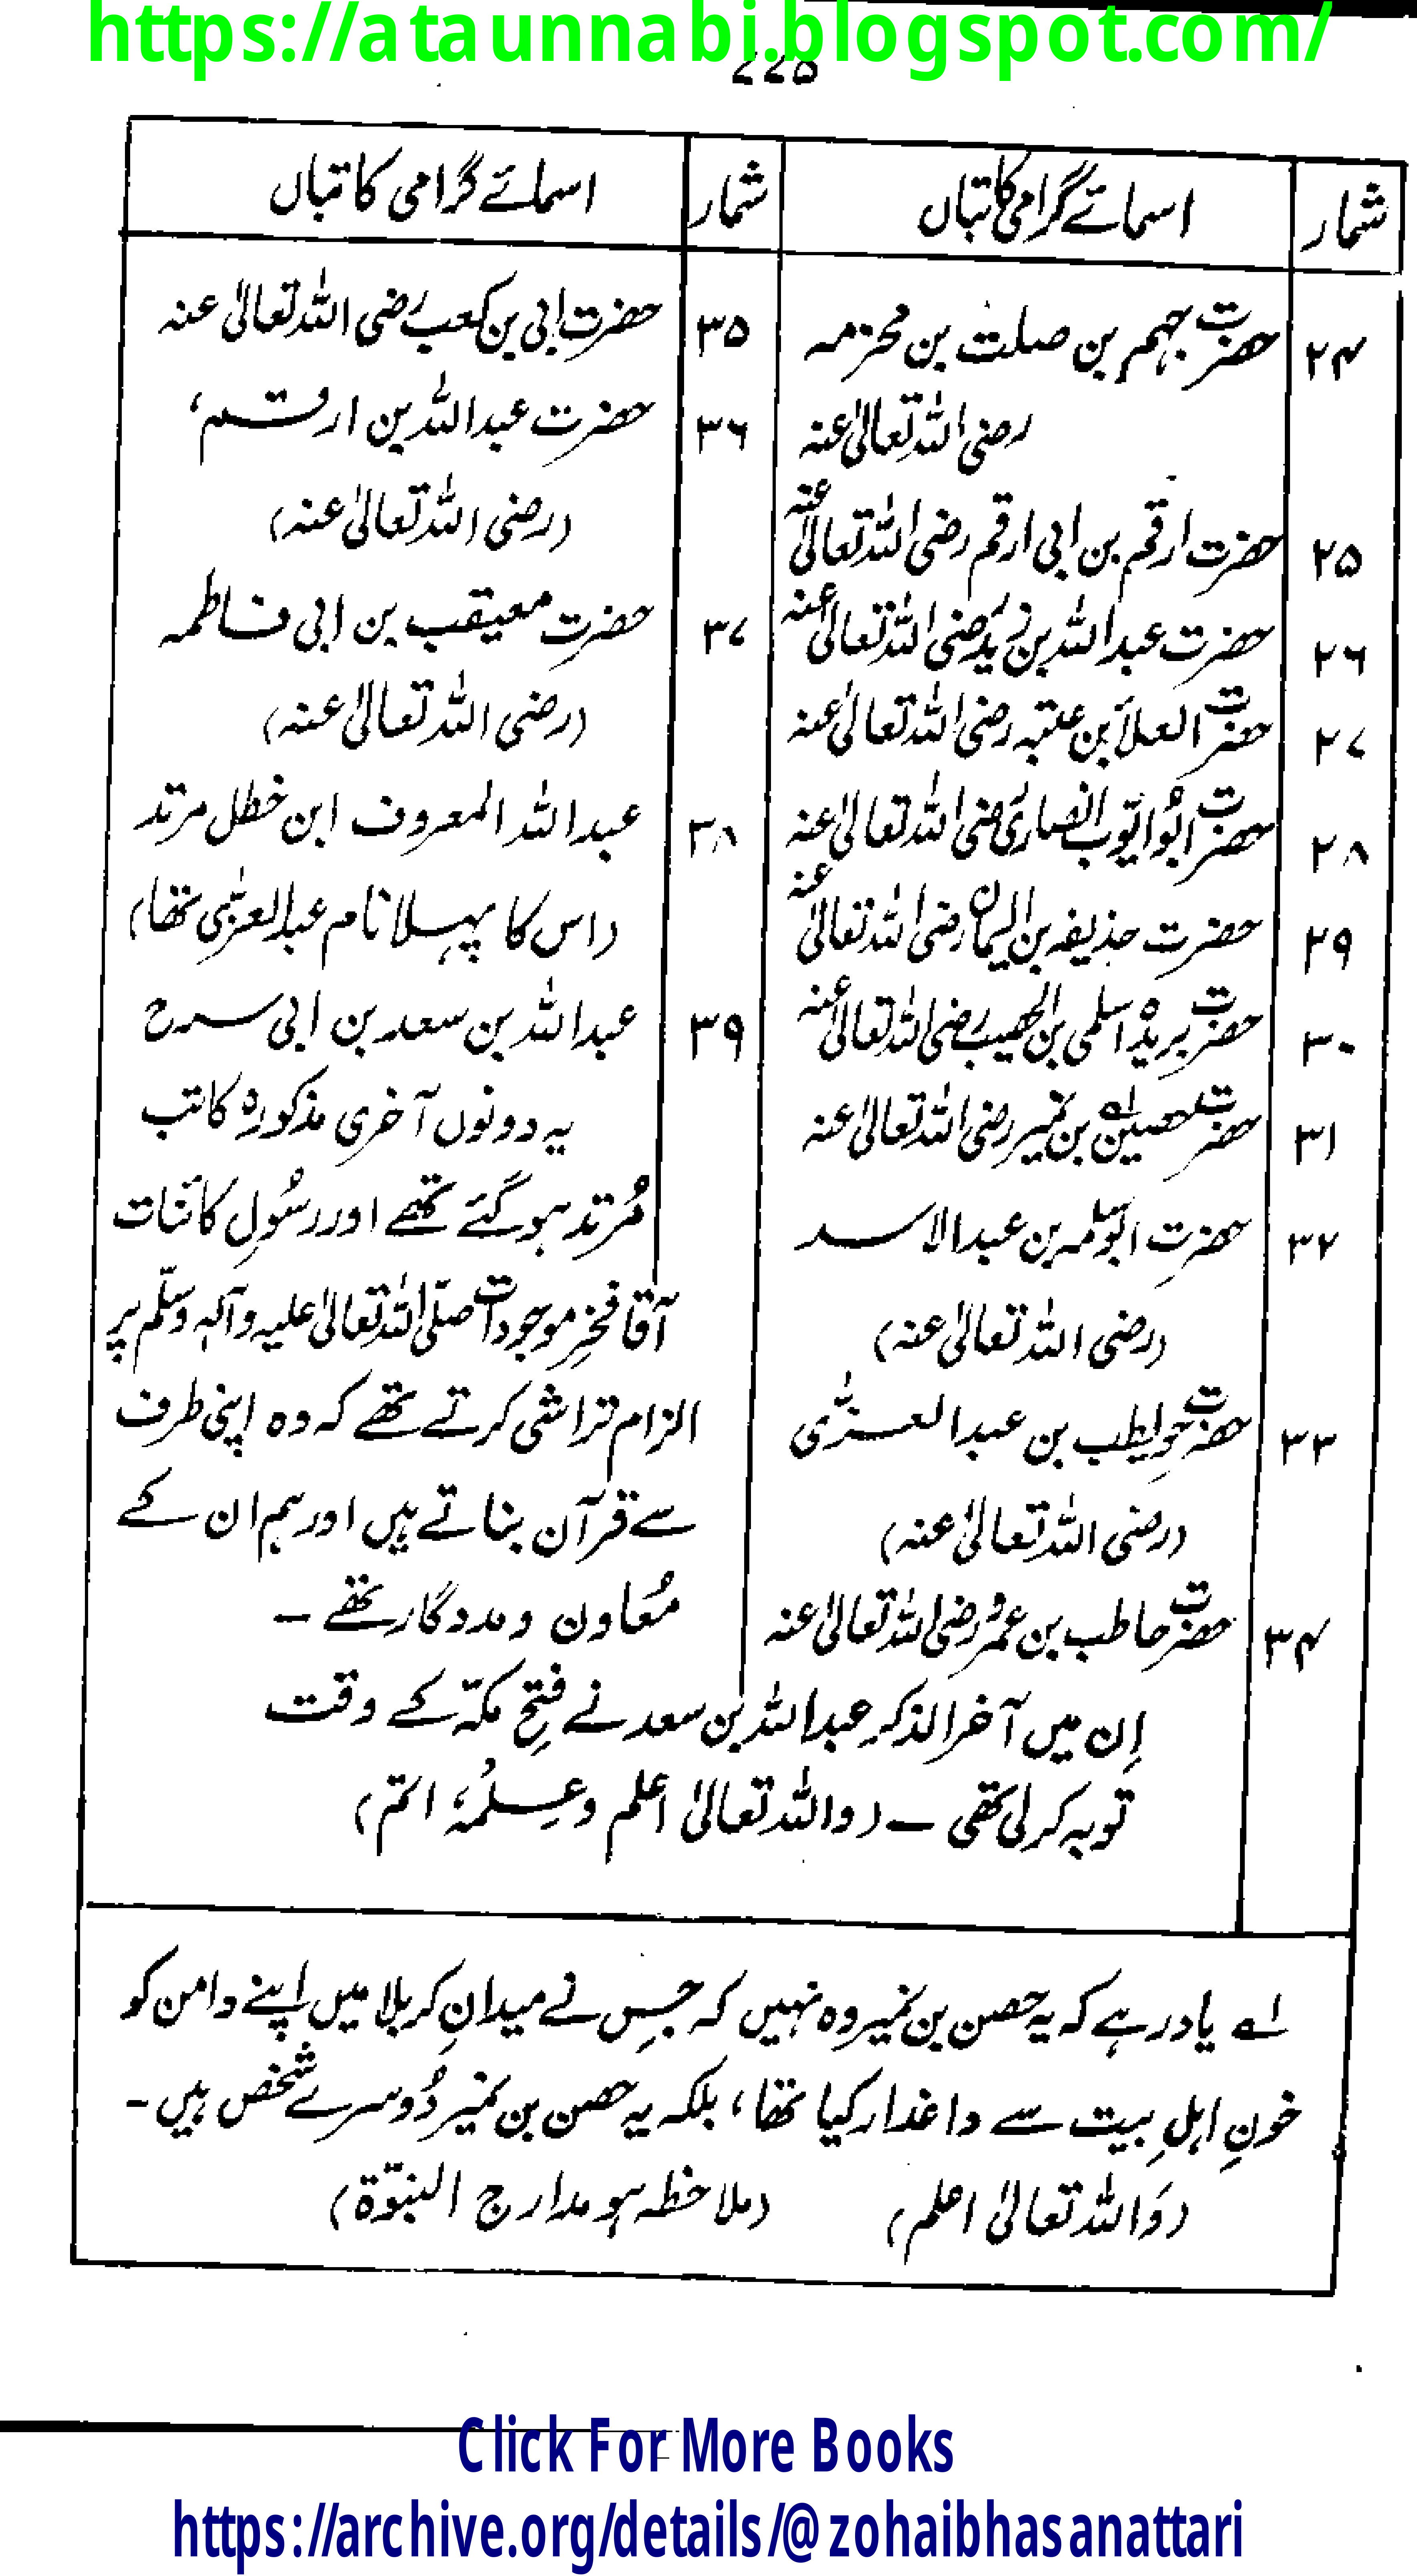 https://ataunnabi.blogspot.com/
۷۷۵
شمار
اسمائے گرامی کاتباں
شمار
اسمائے گرامی کاتباں
۲۴
حضرت جہم بن صلت بن مخرمہ
رضی اللہ تعالیٰ عنہ
۲۵
حضرت ارقم بن ابی ارقم رضی اللہ تعالیٰ عنہ
۲۶
حضرت عبداللہ بن زید رضی اللہ تعالیٰ عنہ
۲۷
حضرت العلاَ بن عتبہ رضی اللہ تعالیٰ عنہ
۲۸
حضرت ابُو ایّوب انصاری رضی اللہ تعالیٰ عنہ
۲۹
حضرت حذیفہ بن الیمان رضی اللہ تعالیٰ عنہ
۳۰
حضرت بریدہ اسلمی بن الحصیب رضی اللہ تعالیٰ عنہ
۳۱
حضرت حصین لہ بن نمیر رضی اللہ تعالیٰ عنہ
۳۲
حضرت ابوسلمہ بن عبدالاسد
(رضی اللہ تعالیٰ عنہ)
۳۳
حضرت حویطب بن عبدالعزّٰی
(رضی اللہ تعالیٰ عنہ)
۳۴
حضرت حاطب بن عمرو رضی اللہ تعالیٰ عنہ
۳۵
حضرت ابی بن کعب رضی اللہ تعالیٰ عنہ
۳۶
حضرت عبداللہ بن ارقم،
(رضی اللہ تعالیٰ عنہ)
۳۷
حضرت معیقب بن ابی فاطمہ
(رضی اللہ تعالیٰ عنہ)
۳۸
عبداللہ المعروف ابن خطل مرتد
(اس کا پہلا نام عبدالعزّٰی تھا)
۳۹
عبداللہ بن سعد بن ابی سرح
یہ دونوں آخری مذکورہ کاتب
مُرتد ہو گئے تھے اور رسُولِ کائنات
آقا فخرِ موجودات صلّی اللہ تعالیٰ علیہ وآلہٖ وسلّم پر
الزام تراشی کرتے تھے کہ وہ اپنی طرف
سے قرآن بناتے ہیں اور ہم ان کے
مُعاون و مددگار تھے ۔
اِن میں آخر الذکر عبداللہ بن سعد نے فتحِ مکّہ کے وقت
توبہ کر لی تھی ۔ (واللہ تعالیٰ اعلم وعِلمُہٗ اتم)
لہ یاد رہے کہ یہ حصن بن نمیر وہ نہیں کہ جس نے میدانِ کربلا میں اپنے دامن کو
خونِ اہلِ بیت سے داغدار کیا تھا، بلکہ یہ حصن بن نمیر دُوسرے شخص ہیں ۔
(وَاللہ تعالیٰ اعلم) (ملاحظہ ہو مدارج النبوّۃ)
Click For More Books
https://archive.org/details/@zohaibhasanattari